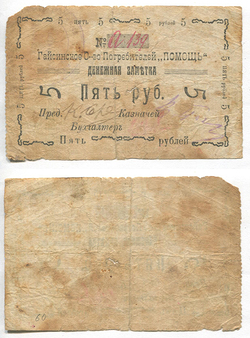 5 пять 5 рублей 5
№ А.139
Гайсинское О-во Потребителей „ПОМОЩЬ“
ДЕНЕЖНАЯ ЗАМѢТКА
5 Пять руб. 5
Пред. Казначей
Бухгалтеръ
Пять рублей